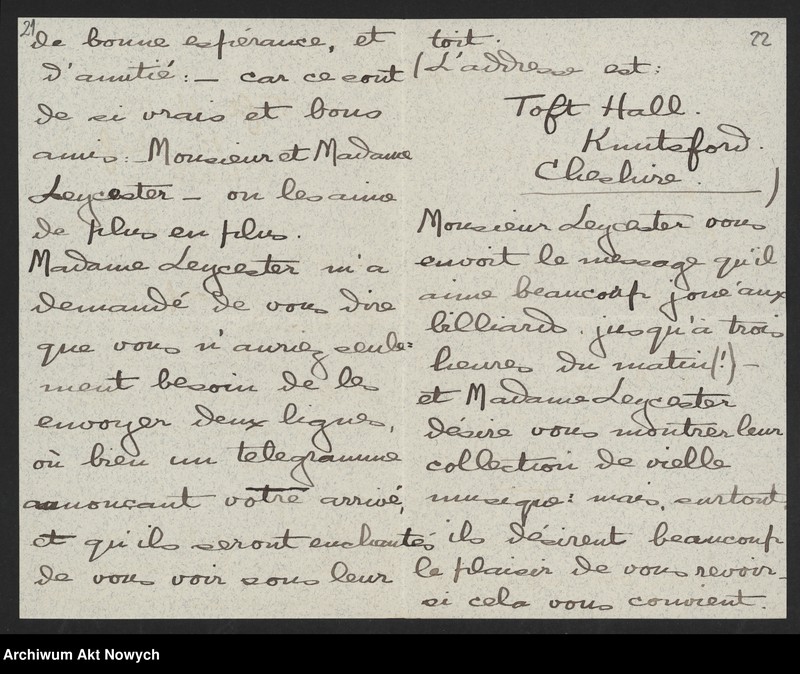 21
de bonne espérance, et
d'amitié: — car ce sont
de si vrais et bons
amis: Monsieur et Madame
Leycester — on les aime
de plus en plus.
Madame Leycester m'a
demandé de vous dire
que vous n'auriez seule=
ment besoin de les
envoyer deux lignes,
où bien un telegramme
annonçant votre arrivé,
et qu'ils seront enchantés
de vous voir sous leur
22
toit.
(L'addresse est:
Toft Hall.
Knutsford.
Cheshire.)
Monsieur Leycester vous
envoit le message qu'il
aime beaucoup joué aux
billiards jusqu'à trois
heures du matin(!) —
et Madame Leycester
désire vous montrer leur
collection de vielle
musique: mais, surtout,
ils désirent beaucoup
le plaisir de vous revoir —
si cela vous convient.
Archiwum Akt Nowych